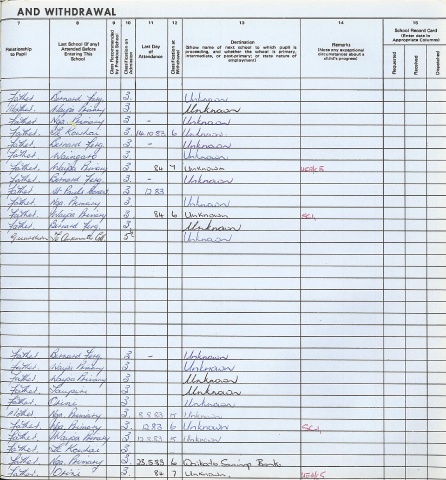 AND WITHDRAWAL
7 8 9 10 11 12 13 14 15
Relationship to Pupil
Last School (if any) Attended Before Entering This School
Class Recommended by Previous School
Classification on Admission
Last Day of Attendance
Classification at Withdrawal
Destination (Show name of next school to which pupil is proceeding, and whether the school is primary, intermediate, or post-primary; or state nature of employment)
Remarks (Note any exceptional circumstances about a child's progress)
School Record Card (Enter date in Appropriate Columns)
Requested Received Despatched
Father Bernard Ferg. 3. Unknown
Waipa Primary 3. Unknown
Father Nga. Primary 3. - Unknown
Father. Te Kowhai 3. 14.10.83 6 Unknown.
Father. Bernard Ferg. 3. - Unknown
Father. 3. Unknown
Father. Waipa Primary 3. 84 7 Unknown
Father. Bernard Ferg 3. - Unknown
Father. St Pauls 3. 12.83
Father. Nga. Primary 3. Unknown
Father. Waipa Primary 3. 84 6 Unknown
Father. Bernard Ferg. 3. Unknown
Guardian Unknown
Father. Bernard Ferg. 3. - Unknown
Father. Waipa Primary 3. Unknown
Father. Waipa Primary 3. Unknown
Father. Taupiri 3. Unknown
Father. Orini 3. Unknown
Mother Nga. Primary 3. Unknown
Father. Nga. Primary 3. 12.83 6 Unknown
Father. Waipa Primary 3. Unknown
Father. Te Kowhai 3.
Father. Nga. Primary 3. 23.5.83 6 Waikato Savings Bank
Father. Orini 3. 84 7 Unknown.